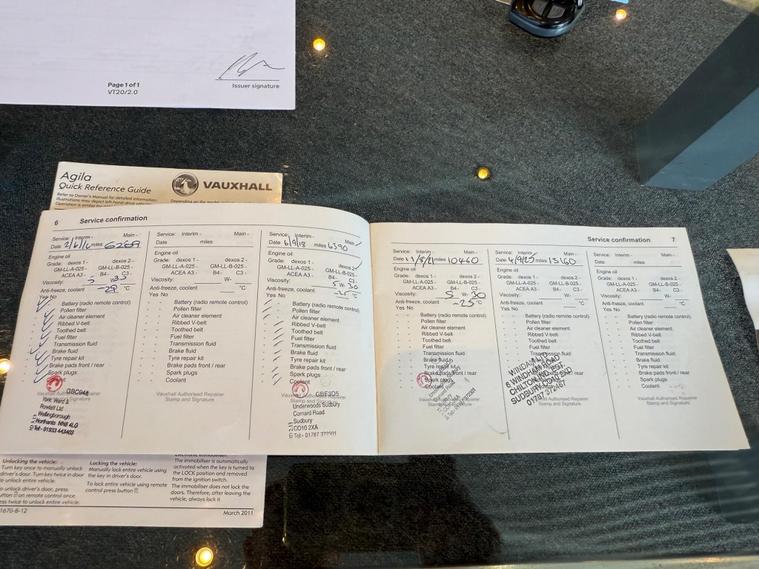 Page 1 of 1
VT20/2.0
Issuer signature
Agila
Quick Reference Guide
VAUXHALL
Refer to Owner's Manual for detailed information.
6 Service confirmation
Service: Interim - Main -
Date 2/6/16 miles 6269
Engine oil
Grade: dexos 1 - dexos 2 -
GM-LL-A-025 - GM-LL-B-025 -
ACEA A3 - B4- C3 -
Viscosity:
Anti-freeze, coolant °C
Yes No
Battery (radio remote control)
Pollen filter
Air cleaner element
Ribbed V-belt
Toothed belt
Fuel filter
Transmission fluid
Brake fluid
Tyre repair kit
Brake pads front / rear
Spark plugs
Coolant
Vauxhall Authorised Repairer
Stamp and Signature
Wellingborough
Northants NN8 4LG
Service: Interim - Main -
Date miles
Engine oil
Grade: dexos 1 - dexos 2 -
GM-LL-A-025 - GM-LL-B-025 -
ACEA A3 - B4- C3 -
Viscosity: W-
Anti-freeze, coolant °C
Yes No
Battery (radio remote control)
Pollen filter
Air cleaner element
Ribbed V-belt
Toothed belt
Fuel filter
Transmission fluid
Brake fluid
Tyre repair kit
Brake pads front / rear
Spark plugs
Coolant
Vauxhall Authorised Repairer
Stamp and Signature
Service: Interim - Main
Date 6/9/18 miles 6390
Engine oil
Grade: dexos 1 - dexos 2 -
GM-LL-A-025 - GM-LL-B-025 -
ACEA A3 - B4- C3 -
Viscosity: 5 W- 30
Anti-freeze, coolant -25 °C
Yes No
Battery (radio remote control)
Pollen filter
Air cleaner element
Ribbed V-belt
Toothed belt
Fuel filter
Transmission fluid
Brake fluid
Tyre repair kit
Brake pads front / rear
Spark plugs
Coolant
Stamp and Signature
Underwoods Sudbury
Cornard Road
Sudbury
CO10 2XA
Service confirmation 7
Service: Interim - Main -
miles 10460
Engine oil
Grade: dexos 1 - dexos 2 -
GM-LL-A-025 - GM-LL-B-025 -
ACEA A3 - B4- C3 -
Viscosity: 5 W- 30
Anti-freeze, coolant -25 °C
Yes No
Battery (radio remote control)
Pollen filter
Air cleaner element
Ribbed V-belt
Toothed belt
Fuel filter
Transmission fluid
Brake fluid
Tyre repair kit
Brake pads front / rear
Spark plugs
Coolant
Service: Interim - Main -
Date 4/9/25 miles 13160
Engine oil
Grade: dexos 1 - dexos 2 -
GM-LL-A-025 - GM-LL-B-025 -
ACEA A3 - B4- C3 -
Viscosity: W-
Anti-freeze, coolant °C
Yes No
Battery (radio remote control)
Pollen filter
Air cleaner element
Ribbed V-belt
Toothed belt
Fuel filter
Transmission fluid
Brake fluid
SUDBURY
01787 372467
Service: Interim - Main -
Date miles
Engine oil
Grade: dexos 1 - dexos 2 -
GM-LL-A-025 - GM-LL-B-025 -
ACEA A3 - B4- C3 -
Viscosity: W-
Anti-freeze, coolant °C
Yes No
Battery (radio remote control)
Pollen filter
Air cleaner element
Ribbed V-belt
Toothed belt
Fuel filter
Transmission fluid
Brake fluid
Tyre repair kit
Brake pads front / rear
Spark plugs
Coolant
Vauxhall Authorised Repairer
Stamp and Signature
Unlocking the vehicle:
Turn key once to manually unlock
driver's door. Turn key twice in door
to unlock entire vehicle.
press twice to unlock entire vehicle.
Locking the vehicle:
Manually lock entire vehicle using
the key in driver's door.
To lock entire vehicle using remote
control press button
The immobiliser is automatically
activated when the key is turned to
the LOCK position and removed
from the ignition switch.
The immobiliser does not lock the
doors. Therefore, after leaving the
vehicle, always lock it.
March 2011